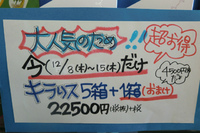 大人気のため!!
超お得
今(12/3(木)〜15(木)だけ
4500円
キラリス5箱+1箱(おまけ)
22500円(税抜)+税